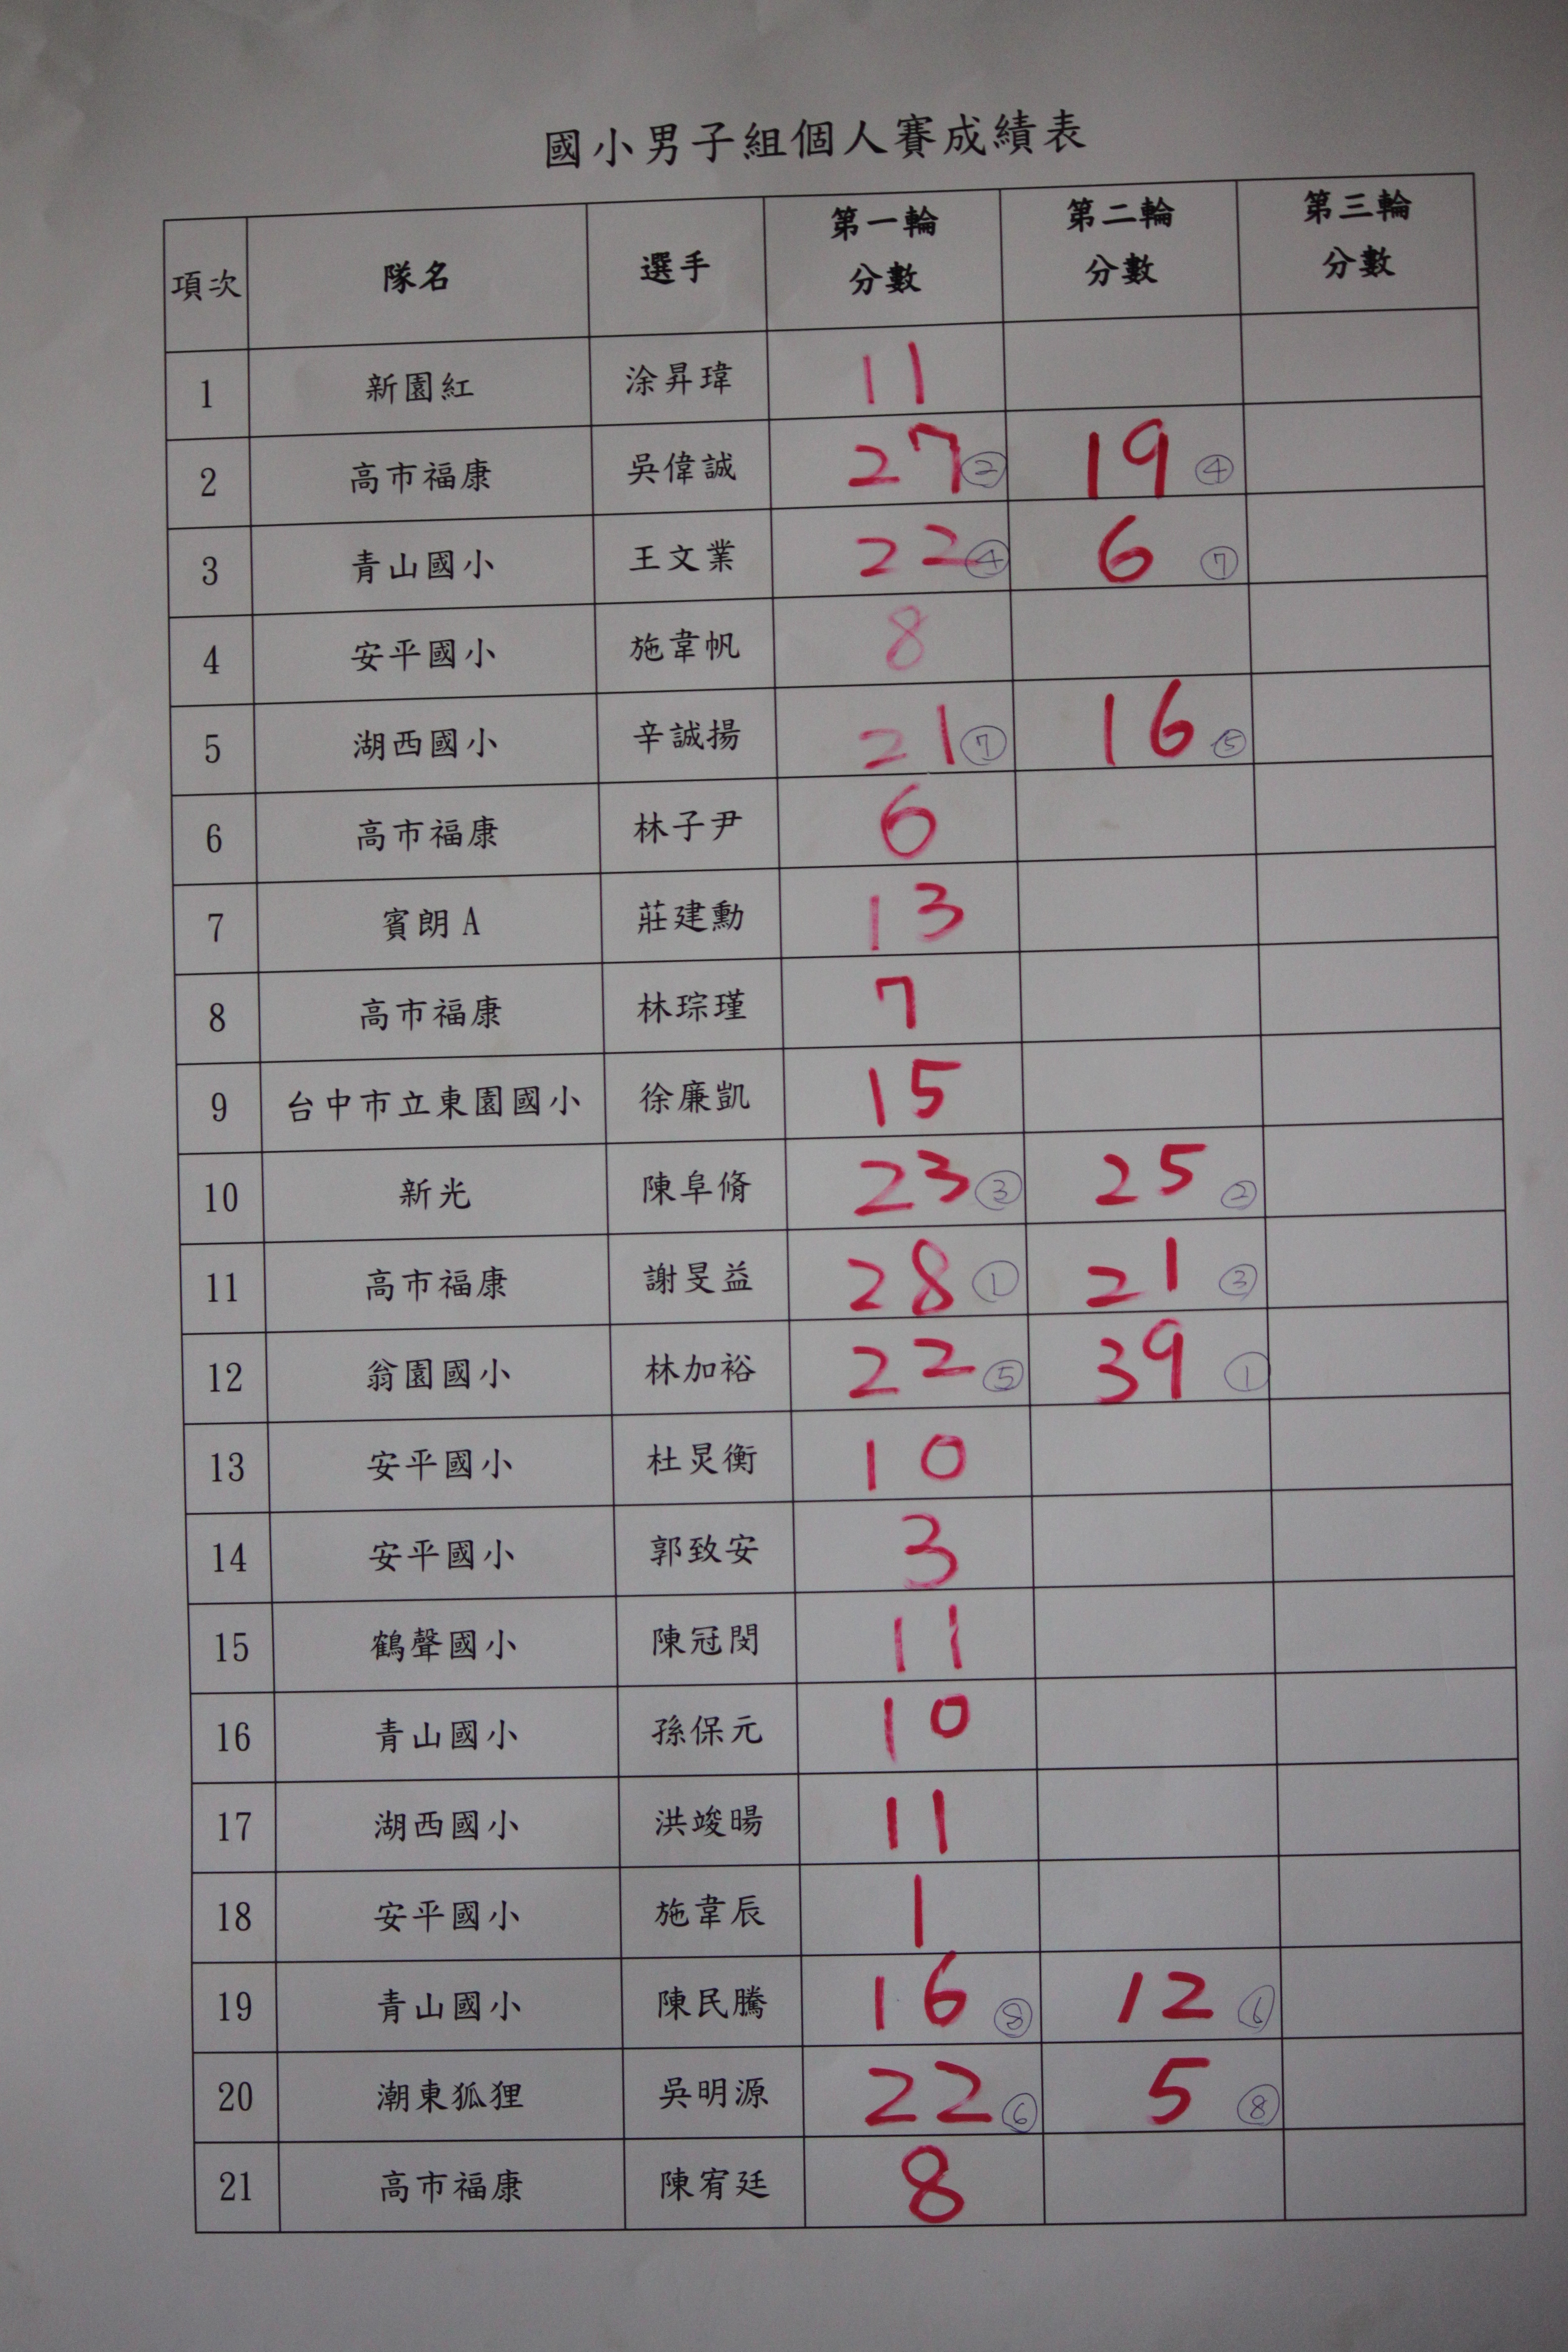 國小男子組個人賽成績表
項次 隊名 選手 第一輪分數 第二輪分數 第三輪分數
1 新園紅 涂昇瑋 11
2 高市福康 吳偉誠 27 ② 19 ④
3 青山國小 王文業 22 ④ 6 ⑦
4 安平國小 施韋帆 8
5 湖西國小 辛誠揚 21 ⑦ 16 ⑤
6 高市福康 林子尹 6
7 賓朗A 莊建勳 13
8 高市福康 林琮瑾 7
9 台中市立東園國小 徐廉凱 15
10 新光 陳阜脩 23 ③ 25 ②
11 高市福康 謝旻益 28 ① 21 ③
12 翁園國小 林加裕 22 ⑤ 39 ①
13 安平國小 杜炅衡 10
14 安平國小 郭致安 3
15 鶴聲國小 陳冠閔 11
16 青山國小 孫保元 10
17 湖西國小 洪竣暘 11
18 安平國小 施韋辰 1
19 青山國小 陳民騰 16 ⑧ 12 ⑥
20 潮東狐狸 吳明源 22 ⑥ 5 ⑧
21 高市福康 陳宥廷 8